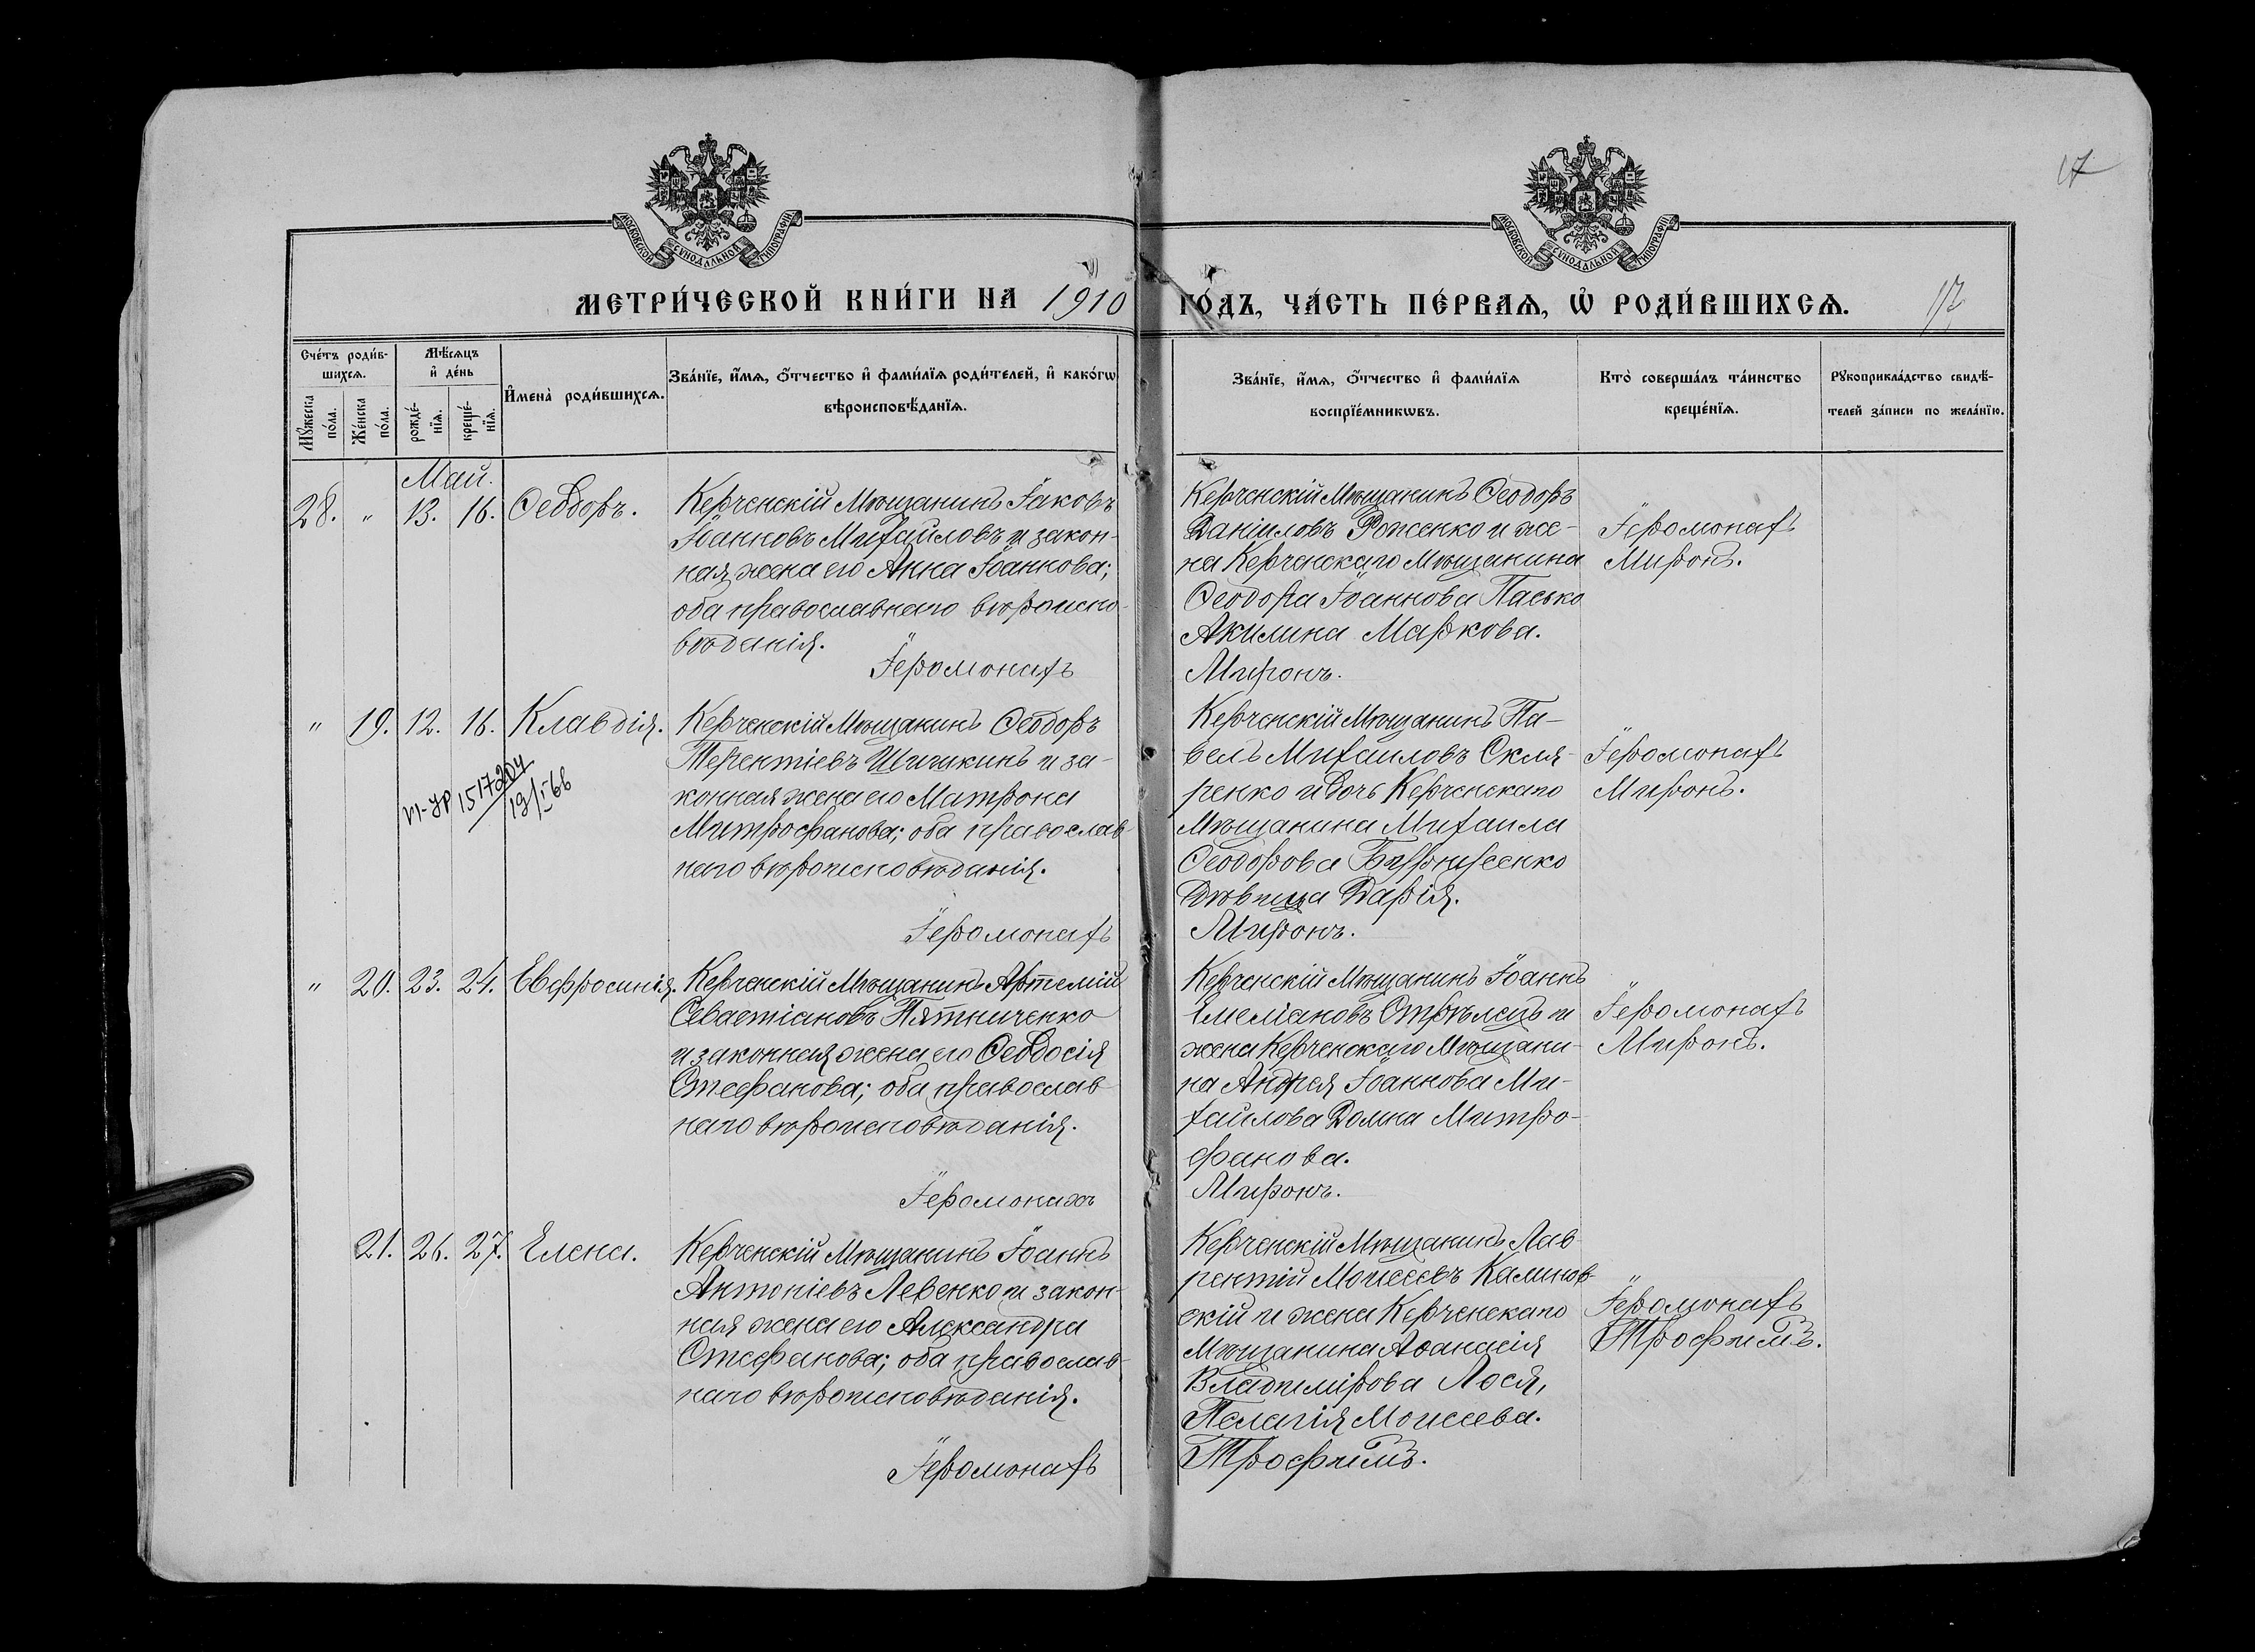 17
МОСКОВСКОЙ СѴНОДАЛЬНОЙ ТИПОГРАФІИ
МОСКОВСКОЙ СѴНОДАЛЬНОЙ ТИПОГРАФІИ
МЕТРИ́ЧЕСКОЙ КНИ́ГИ НА 1910 ГО́ДЪ, ЧА́СТЬ ПЕ́РВАѦ, Ѡ҆ РОДИ́ВШИХСѦ. 17
Сче́тъ роди́в-
шихсѧ.
Мꙋ́жеска по́ла.
Же́нска по́ла.
Мѣ́сѧцъ
и҆ де́нь
рожде́-
нїѧ.
креще́-
нїѧ.
И҆мена̀ роди́вшихсѧ.
Зва́нїе, и҆́мѧ, ѻ҆́тчество и҆ фами́лїѧ роди́телей, и҆ како́гѡ
вѣроисповѣ́данїѧ.
Зва́нїе, и҆́мѧ, ѻ҆́тчество и҆ фами́лїѧ
воспрїе́мникѡвъ.
Кто̀ соверша́лъ та́инство
креще́нїѧ.
Рꙋкоприкла́дство свидѣ́-
телей за́писи по жела́нїю.
Май.
28. " 13. 16. Ѳеодоръ.
Керченскій Мѣщанинъ Іаковъ
Іоанновъ Михайловъ и закон-
ная жена его Анна Іоаннова;
оба православнаго вѣроиспо-
вѣданія.
Іеромонахъ
Керченскій Мѣщанинъ Ѳеодоръ
Даніиловъ Роженко и же-
на Керченскаго Мѣщанина
Ѳеодора Іоаннова Пасько
Акилина Маркова.
Миронъ.
Іеромонахъ
Миронъ.
" 19. 12. 16. Клавдія.
1517204
19/I-66
Керченскій Мѣщанинъ Ѳеодоръ
Терентіевъ Шишкинъ и за-
конная жена его Матрона
Митрофанова; оба православ-
наго вѣроисповѣданія.
Іеромонахъ
Керченскій Мѣщанинъ Па-
велъ Михаиловъ Скля-
ренко и дочь Керченскаго
Мѣщанина Михаила
Ѳеодорова
Дѣвица Дарія.
Миронъ.
Іеромонахъ
Миронъ.
" 20. 23. 24. Евфросинія.
Керченскій Мѣщанинъ Артемій
Севастіановъ Пятниченко
и законная жена его Ѳеодосія
Стефанова; оба православ-
наго вѣроисповѣданія.
Іеромонахъ
Керченскій Мѣщанинъ Іоаннъ
Емеліановъ Стрѣлецъ и
жена Керченскаго Мѣщани-
на Андрея Іоаннова Ми-
хайлова Домна Митро-
фанова.
Миронъ.
Іеромонахъ
Миронъ.
21. 26. 27. Елена.
Керченскій Мѣщанинъ Іоаннъ
Антоніевъ Левенко и закон-
ная жена его Александра
Стефанова; оба православ-
наго вѣроисповѣданія.
Іеромонахъ
Керченскій Мѣщанинъ Лав-
рентій Моисеевъ Калинов-
скій и жена Керченскаго
Мѣщанина Аѳанасія
Владимірова Лося,
Пелагія Моисеева.
Трофимъ.
Іеромонахъ
Трофимъ.